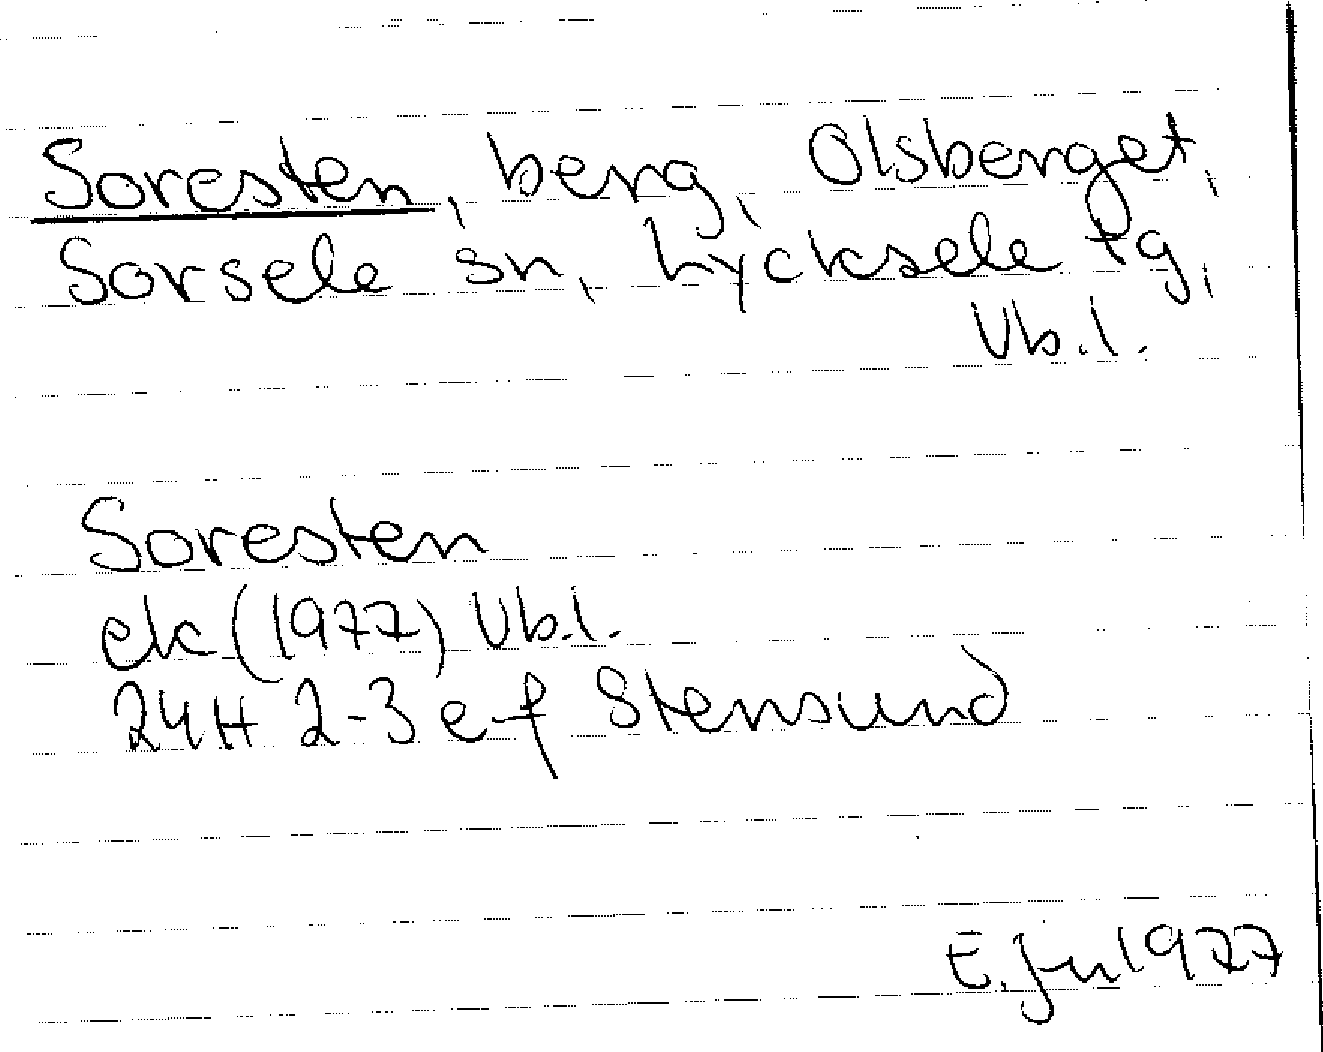 Soresten, berg, Olsberget,
Sorsele sn, Lycksele tg,
Vb.l.
Soresten
ek (1977) Vb.l.
24H 2-3 e-f Stensund
E. Jn 1977